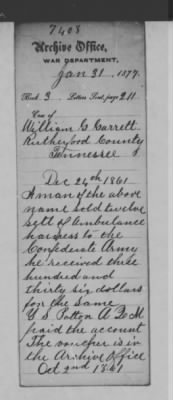 7408
Archive Office,
WAR DEPARTMENT,
Jan 31, 1877.
Book 3, Letters Sent, page 211
Case of
William G Garrett
Rutherford County
Tennessee
Dec 24th 1861
A man of the above
name sold twelve
sett of Ambulance
harness to the
Confederate Army
he received three
hundred and
thirty six dollars
for the same
G S Patton A Q M
paid the account
The voucher is in
the Archive Office
Oct 2nd 1861